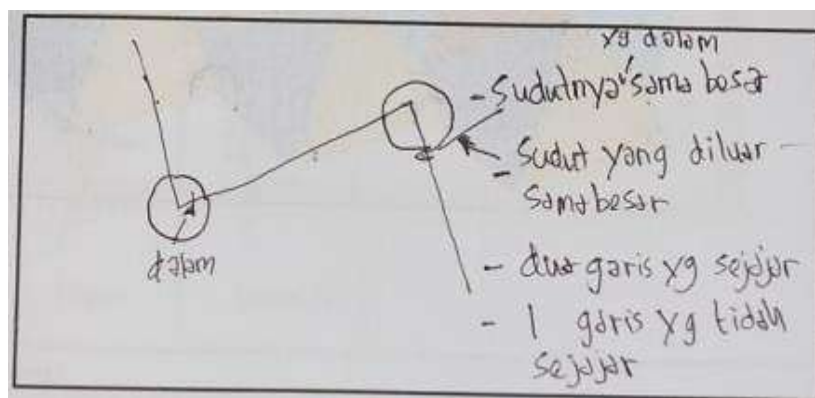 yg dalam
- Sudutnya sama besar
- Sudut yang diluar
sama besar
dalam
- dua garis yg sejajar
- 1 garis yg tidak
sejajar